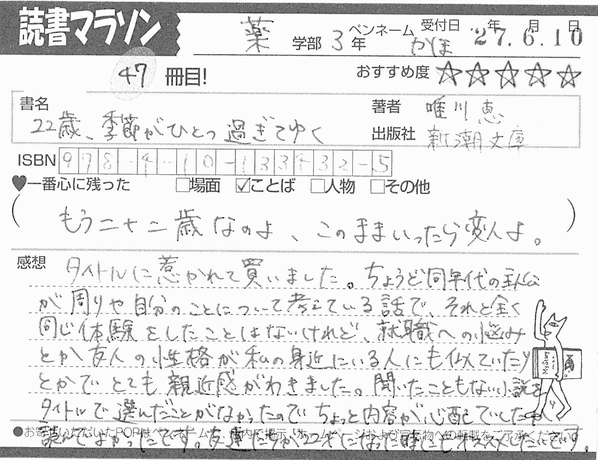 読書マラソン
薬 学部 3 年 ペンネーム かほ 受付日 27.年6.月10日
47 冊目! おすすめ度 ☆☆☆☆☆
書名 22歳、季節がひとつ過ぎてゆく
著者 唯川恵
出版社 新潮文庫
ISBN 978-4-10-133432-5
♥一番心に残った □場面 ☑ことば □人物 □その他
(もう二十二歳なのよ、このままいったら変人よ。)
感想 タイトルに惹かれて買いました。ちょうど同年代の主人公
が周りや自分のことについて考えている話で、それと全く
同じ体験をしたことはないけれど、就職への悩み
とか友人の性格が私の身近にいる人にも似ていたり
とかでとても親近感がわきました。聞いたこともない小説を
タイトルで選んだことがなかったのでちょっと内容が心配でしたが
読んでよかったです。友達たちが22才になった時にもオススメしたいです。
●お客様いただいたPOPは